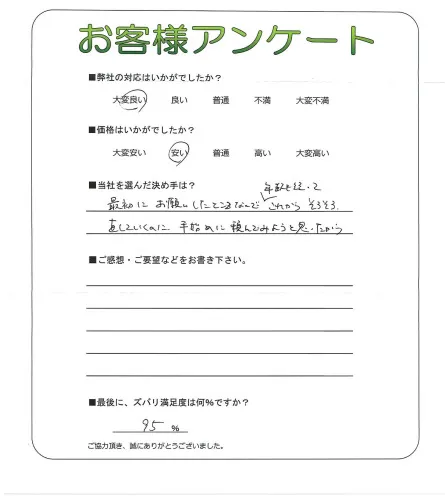 お客様アンケート
■弊社の対応はいかがでしたか？
大変良い 良い 普通 不満 大変不満
■価格はいかがでしたか？
大変安い 安い 普通 高い 大変高い
■当社を選んだ決め手は？
年数も経って
最初に お願いしたところなんで これから そろそろ
直していくのに 手始めに 頼んでみようと思ったから
■ご感想・ご要望などをお書き下さい。
■最後に、ズバリ満足度は何%ですか？
95 %
ご協力頂き、誠にありがとうございました。